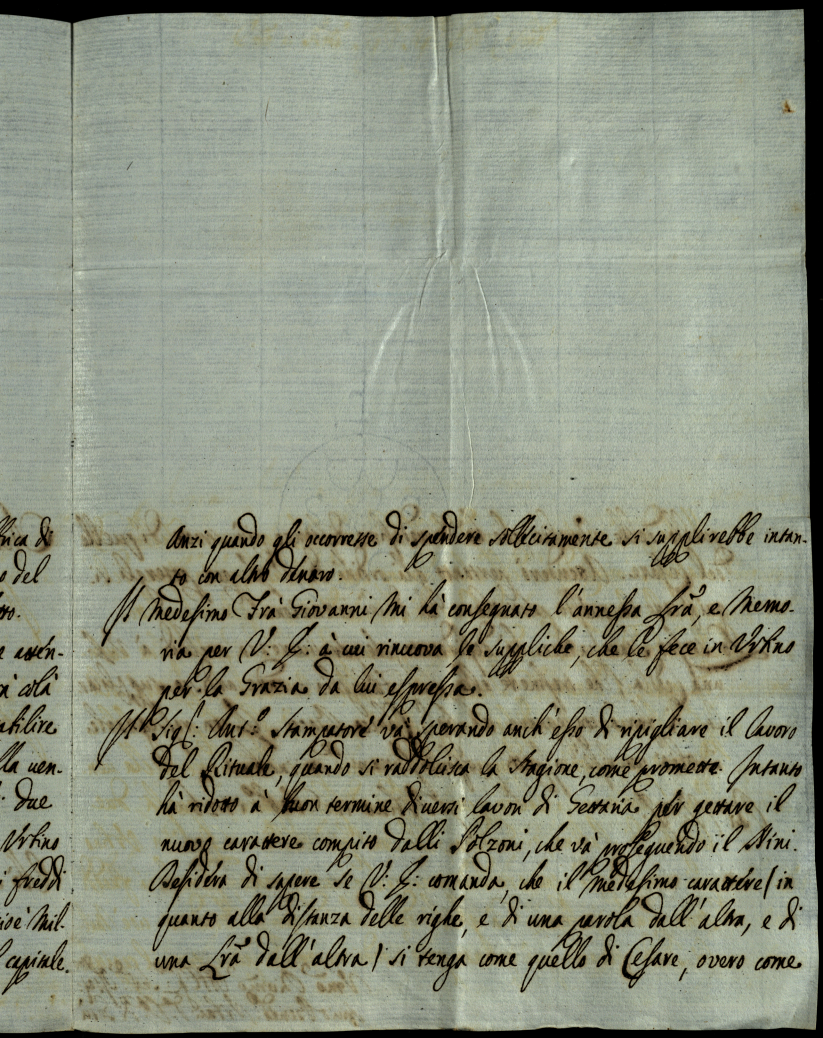 Anzi quando gli occorresse di spendere sollicitamente si supplirebbe intan-
to con altro danaro.
Il medesimo Frà Giovanni mi hà consegnato l'annessa Lrã, e Memo-
ria per V: E: à cui rinuova le suppliche, che le fece in Urbino
per la Grazia da lui espressa.
Il Sig.r Ant.o Stampatore và sperando anch'esso di ripigliare il lavoro
del Rituale, quando si raddolcisca la stagione, come promette. Intanto
hà ridotto à buon termine diversi lavori di Gettaria per gettare il
nuovo carattere compito dalli Polzoni, che và proseguendo il Nini.
Desidera di sapere se V: E: comanda, che il medesimo carattere (in
quanto alla distanza delle righe, e di una parola dall'altra, e di
una Lrã dall'altra) si tenga come quello di Cesare, overo come
brica di
o del
tto.
e atten-
colà
abilire
lla ven-
due
Urbino
i freddi
cioè Mil-
capitale.